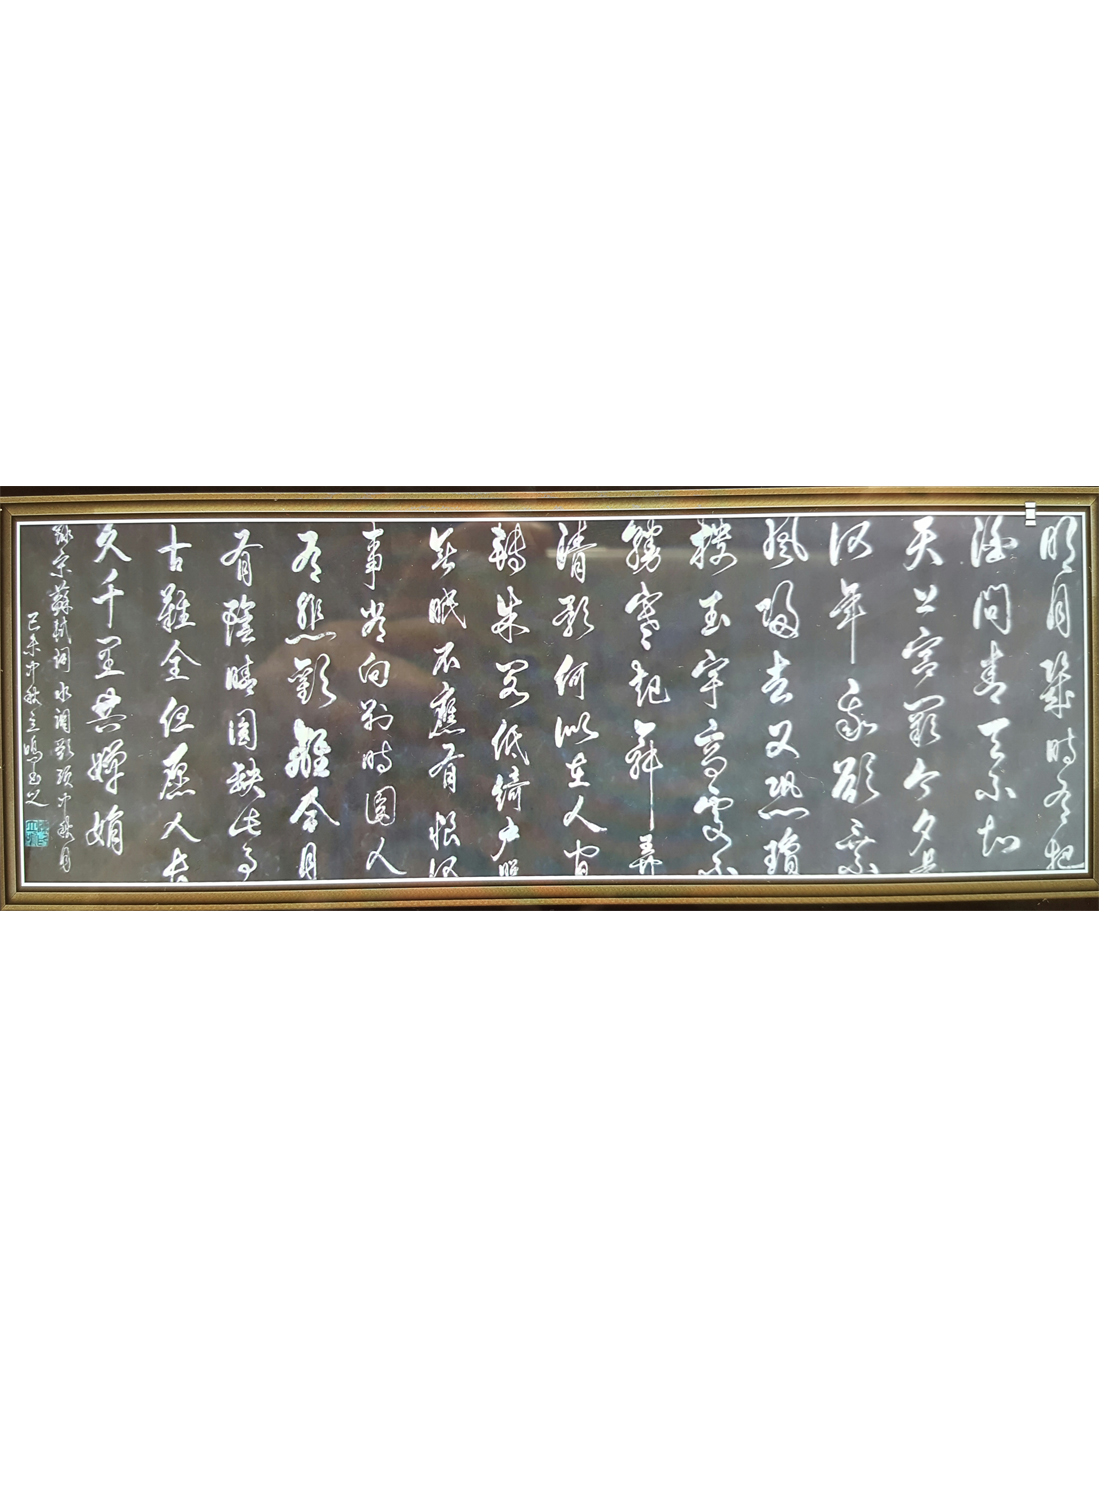 明月幾時有把
酒問青天不知
天上宮闕今夕是
何年我欲乘
風歸去又恐瓊
樓玉宇高處不
勝寒起舞弄
清影何似在人間
轉朱閣低綺戶照
無眠不應有恨何
事長向別時圓人
有悲歡離合月
有陰晴圓缺此事
古難全但愿人長
久千里共嬋娟
錄宋蘇軾詞水調歌頭中秋月
己未中秋立鳴書之